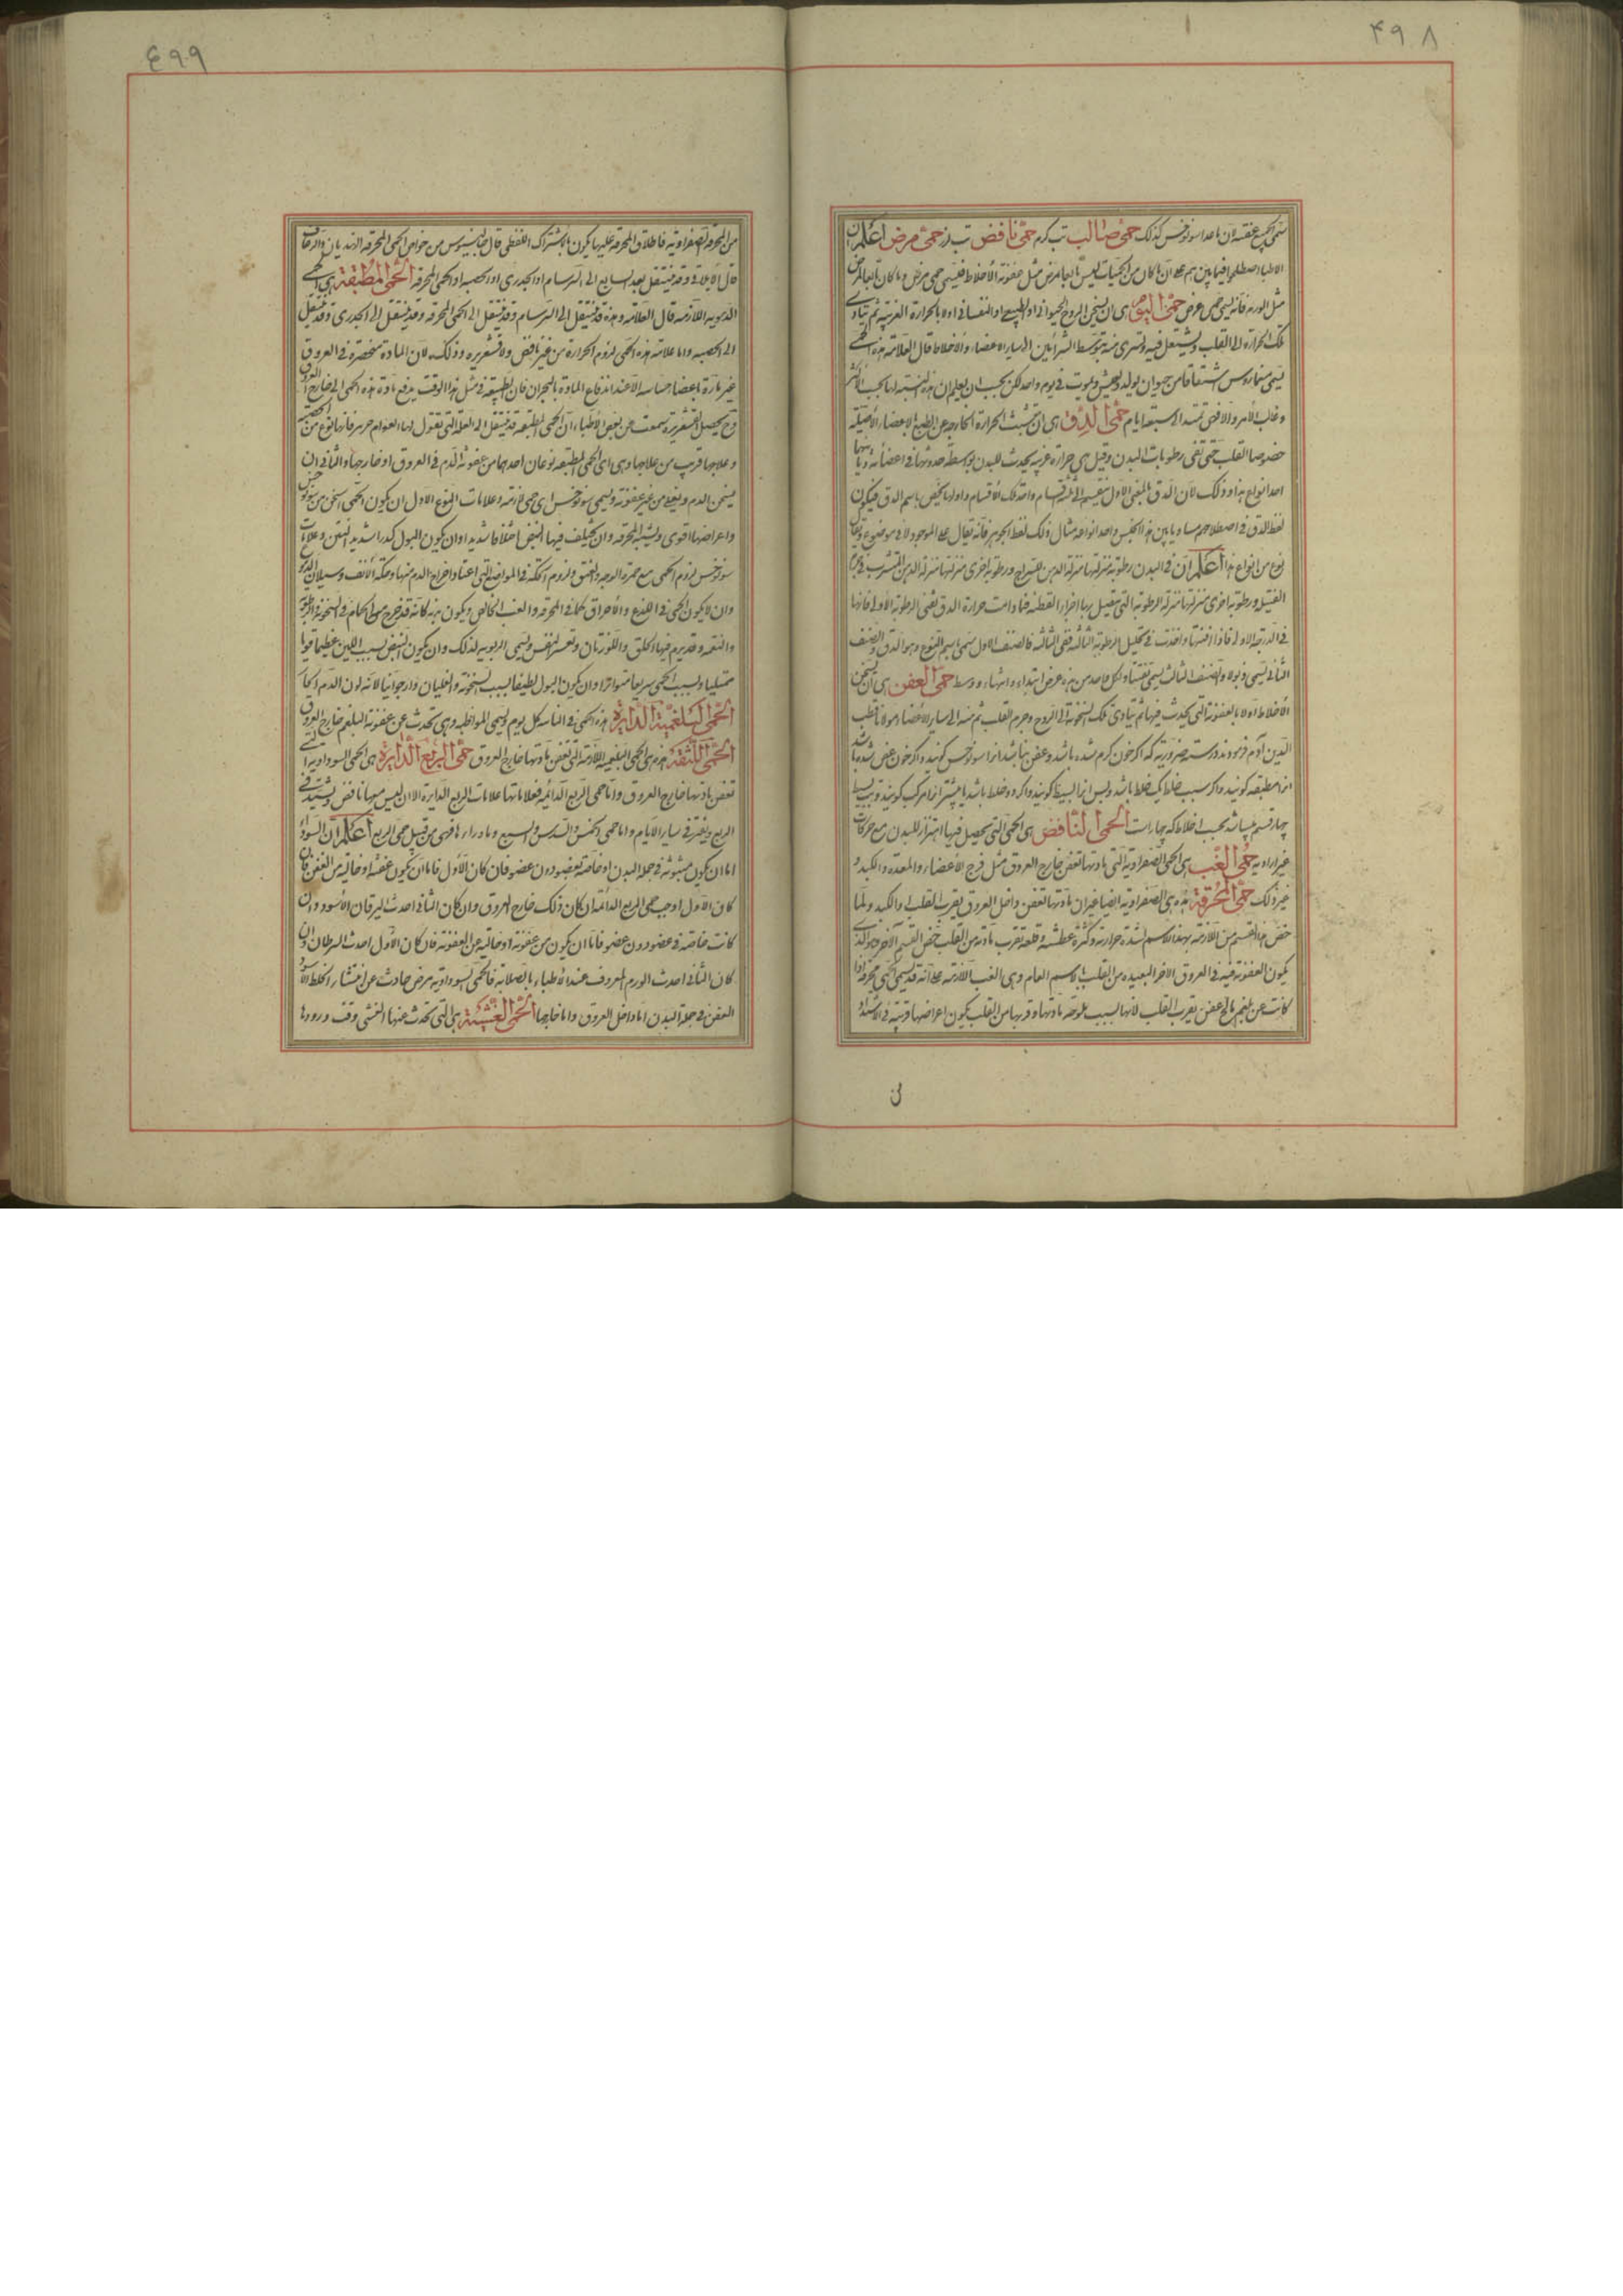 ۴۹۸
سمی الجمیع عفنیة لان ما عدا سونوخس کذلک حمی صالب تب کرم حمی نافض تب لرز حمی مرض اعلم ان
الاطباء اصطلحوا فیما بینهم علی ان ما کان من الحمیات لیس تابعا لمرض مثل عفونة الاخلاط فیسمی حمی مرض وما کان تابعا لمرض
مثل الورم فانه یسمی حمی عرض حمی الیوم هی ان یسخن الروح الحیوانی او الطبیعی او النفسانی اولا بالحرارة الغریبة ثم یتادی
تلک الحرارة الی القلب ویشتعل فیه وتسری منه بتوسط الشرائین الی سایر الاعضاء والاخلاط قال العلامة هذه الحمی
یسمی من اشتقاقا من حیوان یولد ویعیش ویموت فی یوم واحد لکن یجب ان یعلم ان هذه التسمیة لها بحسب الاکثر
وغالب الامر والا فهی تمتد الی سبعة ایام حمی الدق هی ان تثبت الحرارة الخارجة عن الطبع بالاعضاء الاصلیة
خصوصا القلب حتی تفنی رطوبات البدن وقیل هی حرارة غریبة تحدث للبدن بواسطة حدوثها فی اعضائه
احد انواع هذا وذلک لان الدق بالمعنی الاول ینقسم الی اقسام واحد تلک الاقسام واولها یختص باسم الدق فیکون
لفظ الدق فی اصطلاحهم مساویا بین هذا الجنس واحد انواعه مثال ذلک لفظ الجوهر فانه یقال علی الموجود لا فی موضوع
نوع من انواع هذا اعلم ان فی البدن رطوبة منزلتها منزلة الدهن من السراج ورطوبة اخری منزلتها منزلة الدهن المتشرب فی جرم
الفتیل ورطوبة اخری منزلتها منزلة الرطوبة التی یتصل بها اجزاء القطنة فما دامت حرارة الدق تفنی الرطوبة الاولی فانها
فی الدرجة الاولی فاذا افنتها واخذت فی تحلیل الرطوبة الثالثة ففی الثالثة فالصنف الاول یسمی باسم النوع وهو الدق والصنف
الثانی یسمی ذبولا والصنف الثالث یسمی مفتتا ولکل واحد من هذه عرض ابتداء وانتهاء ووسط حمی العفن هی ان یسخن
الاخلاط اولا بالعفونة التی یحدث فیها ثم یتادی تلک السخونة الی الروح وجرم القلب ثم منه الی سایر الاعضاء مولانا قطب
الدین آدم فرموده درسته ضروریه که اکر خون کرم شده باشد وعفن نباشد انرا سونوخس کویند واکر خون عفن شده باشد
انرا مطبقه کویند واکر سبب خلط یک خلط باشد وبس انرا بسیط کویند واکر دو خلط باشد یا بیشتر انرا مرکب کویند وبسیط
چهار قسم میباشد بحسب اخلاط که چهار است الحمی النافض هی الحمی التی یحصل فیها اهتزاز للبدن مع حرکات
غیر ارادیة حمی الغب هی الحمی الصفراویة التی مادتها تعفن خارج العروق مثل فرج الاعضاء والمعدة والکبد و
غیر ذلک حمی المحرقة هذه هی الصفراویة ایضا غیر ان مادتها تعفن داخل العروق بقرب القلب او الکبد ولما
خص هذا القسم من اللازمة بهذا الاسم لشدة حرارته وکثرة عطشه وقلقه لقرب مادته من القلب خص القسم الآخر وهو الذی
یکون العفونة فیه فی العروق الاخر البعیدة من القلب بالاسم العام وهی الغب اللازمة علی انه قد یسمی الحمی محرقة اذا
کانت عن بلغم مالح عفن بقرب القلب لانها بسبب ملوحة مادتها وقربها من القلب یکون اعراضها قریبة فی الاشتداد
من
٤٩٩
من المحرقة الصفراویة فاطلاق المحرقة علیها یکون بالاشتراک اللفظی قال جالینوس من خواص الحمی المحرقة الهذیان والرعاف
قال الایلاقی وقد ینتقل بعد السابع الی السرسام او الجدری او الحصبة او الحمی المحرقة الحمی المطبقة هی الحمی
الدمویة اللازمة قال العلامة وهذه قد تنتقل الی السرسام وقد تنتقل الی الحمی المحرقة وقد تنتقل الی الجدری وقد تنتقل
الی الحصبة واما علامة هذه الحمی لزوم الحرارة من غیر نافض ولا قشعریرة وذلک لان المادة منحصرة فی العروق
غیر مارة باعضاء حساسة الا عند اندفاع المادة بالبحران فان الطبیعة فی مثل هذا الوقت یدفع مادة هذه الحمی الی خارج العروق
وح یحصل القشعریرة سمعت من بعض الاطباء ان الحمی المطبقة قد تنتقل الی العلة التی تقول لها العوام فانها نوع من الحصبة
وعلاجها قریب من علاجها وهی ای الحمی المطبقة نوعان احدهما من عفونة الدم فی العروق او خارجها والثانی ان
یسخن الدم ویغلی من غیر عفونة ویسمی سونوخس ای حمی لازمة وعلامات النوع الاول ان یکون الحمی اسخن من سونوخس
واعراضها اقوی ویشبه المحرقة وان یختلف فیها النبض اختلافا شدیدا وان یکون البول کدرا شدید النتن وعلامات
سونوخس لزوم الحمی مع حمرة الوجه والعنق ولزوم الحکة فی المواضع التی اعتاد اخراج الدم منها وحکة الانف وسیلان الدم
وان لا یکون الحمی فی اللذع والاحراق کما فی المحرقة والغب الخالص ویکون بدنه کانه قد خرج من الحمام فی السخونة والرطوبة
والنعمة وقد یرم فیها الحلق واللوزتان ویعسر النفس ویسمی الربوبیة لذلک وان یکون النبض بسبب اللین عظیما قویا
ممتلیا وبسبب الحمی سریعا متواترا وان یکون البول لطیفا بسبب السخونة والغلیان وارجوانیا لانه لون الدم الحار
الحمی البلغمیة الدایرة هذه الحمی فی الناس کل یوم ویسمی المواظبة وهی تحدث عن عفونة البلغم خارج العروق
الحمی اللثقة هذه هی الحمی البلغمیة اللازمة التی تعفن مادتها خارج العروق حمی الربع الدایرة هی الحمی السوداویة التی
تعفن مادتها خارج العروق واما حمی الربع الدائمة فعلاماتها علامات الربع الدایرة الا ان لیس معها نافض ویشتد فی
الربع ویفتر فی سایر الایام واما حمی الخمس والسدس والسبع وما وراءها فهی من قبیل حمی الربع اعلم ان السوداء
اما ان یکون مبثوثة فی جملة البدن او خاصة بعضو دون عضو فان کان الاول فاما ان یکون عفنة او خالیة من العفن فان
کان الاول اوجب حمی الربع الدائمة ان کان ذلک خارج العروق وان کان الثانی احدث الیرقان الاسود وان
کانت خاصة فی عضو دون عضو فاما ان یکون من عفونة او خالیة عن العفونة فان کان الاول احدث السرطان وان
کان الثانی احدث الورم المعروف عند الاطباء بالصلابة فالحمی السوداویة مرض حادث عن انتشار الخلط الاسود
العفن فی جملة البدن اما داخل العروق واما خارجها الحمی الغشیة هی التی تحدث عنها الغشی وقت ورودها